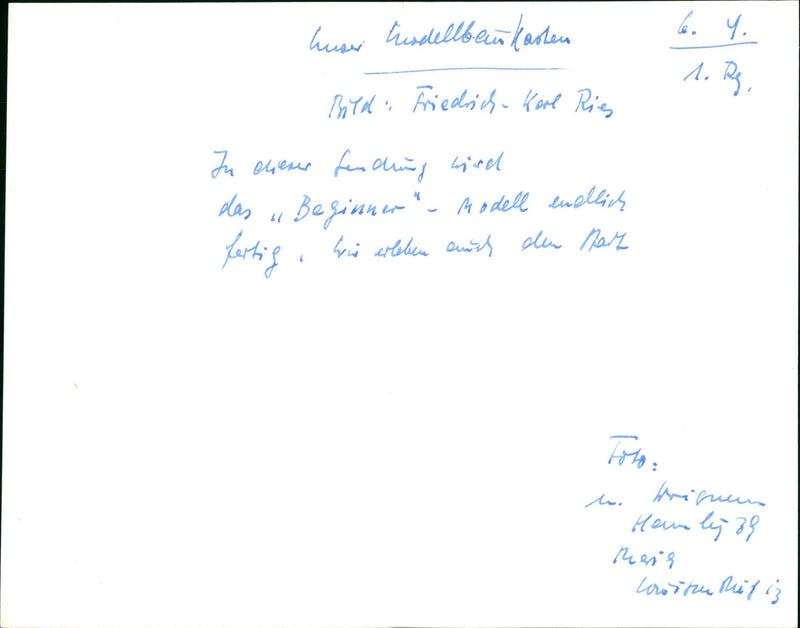 Unser Modellbaukasten
6. 4.
1. Pg.
Bild: Friedrich-Karl Ries
In dieser Sendung wird
das „Beginner“-Modell endlich
fertig. Wir erleben auch den Start
Foto:
Hambg 39
Maria